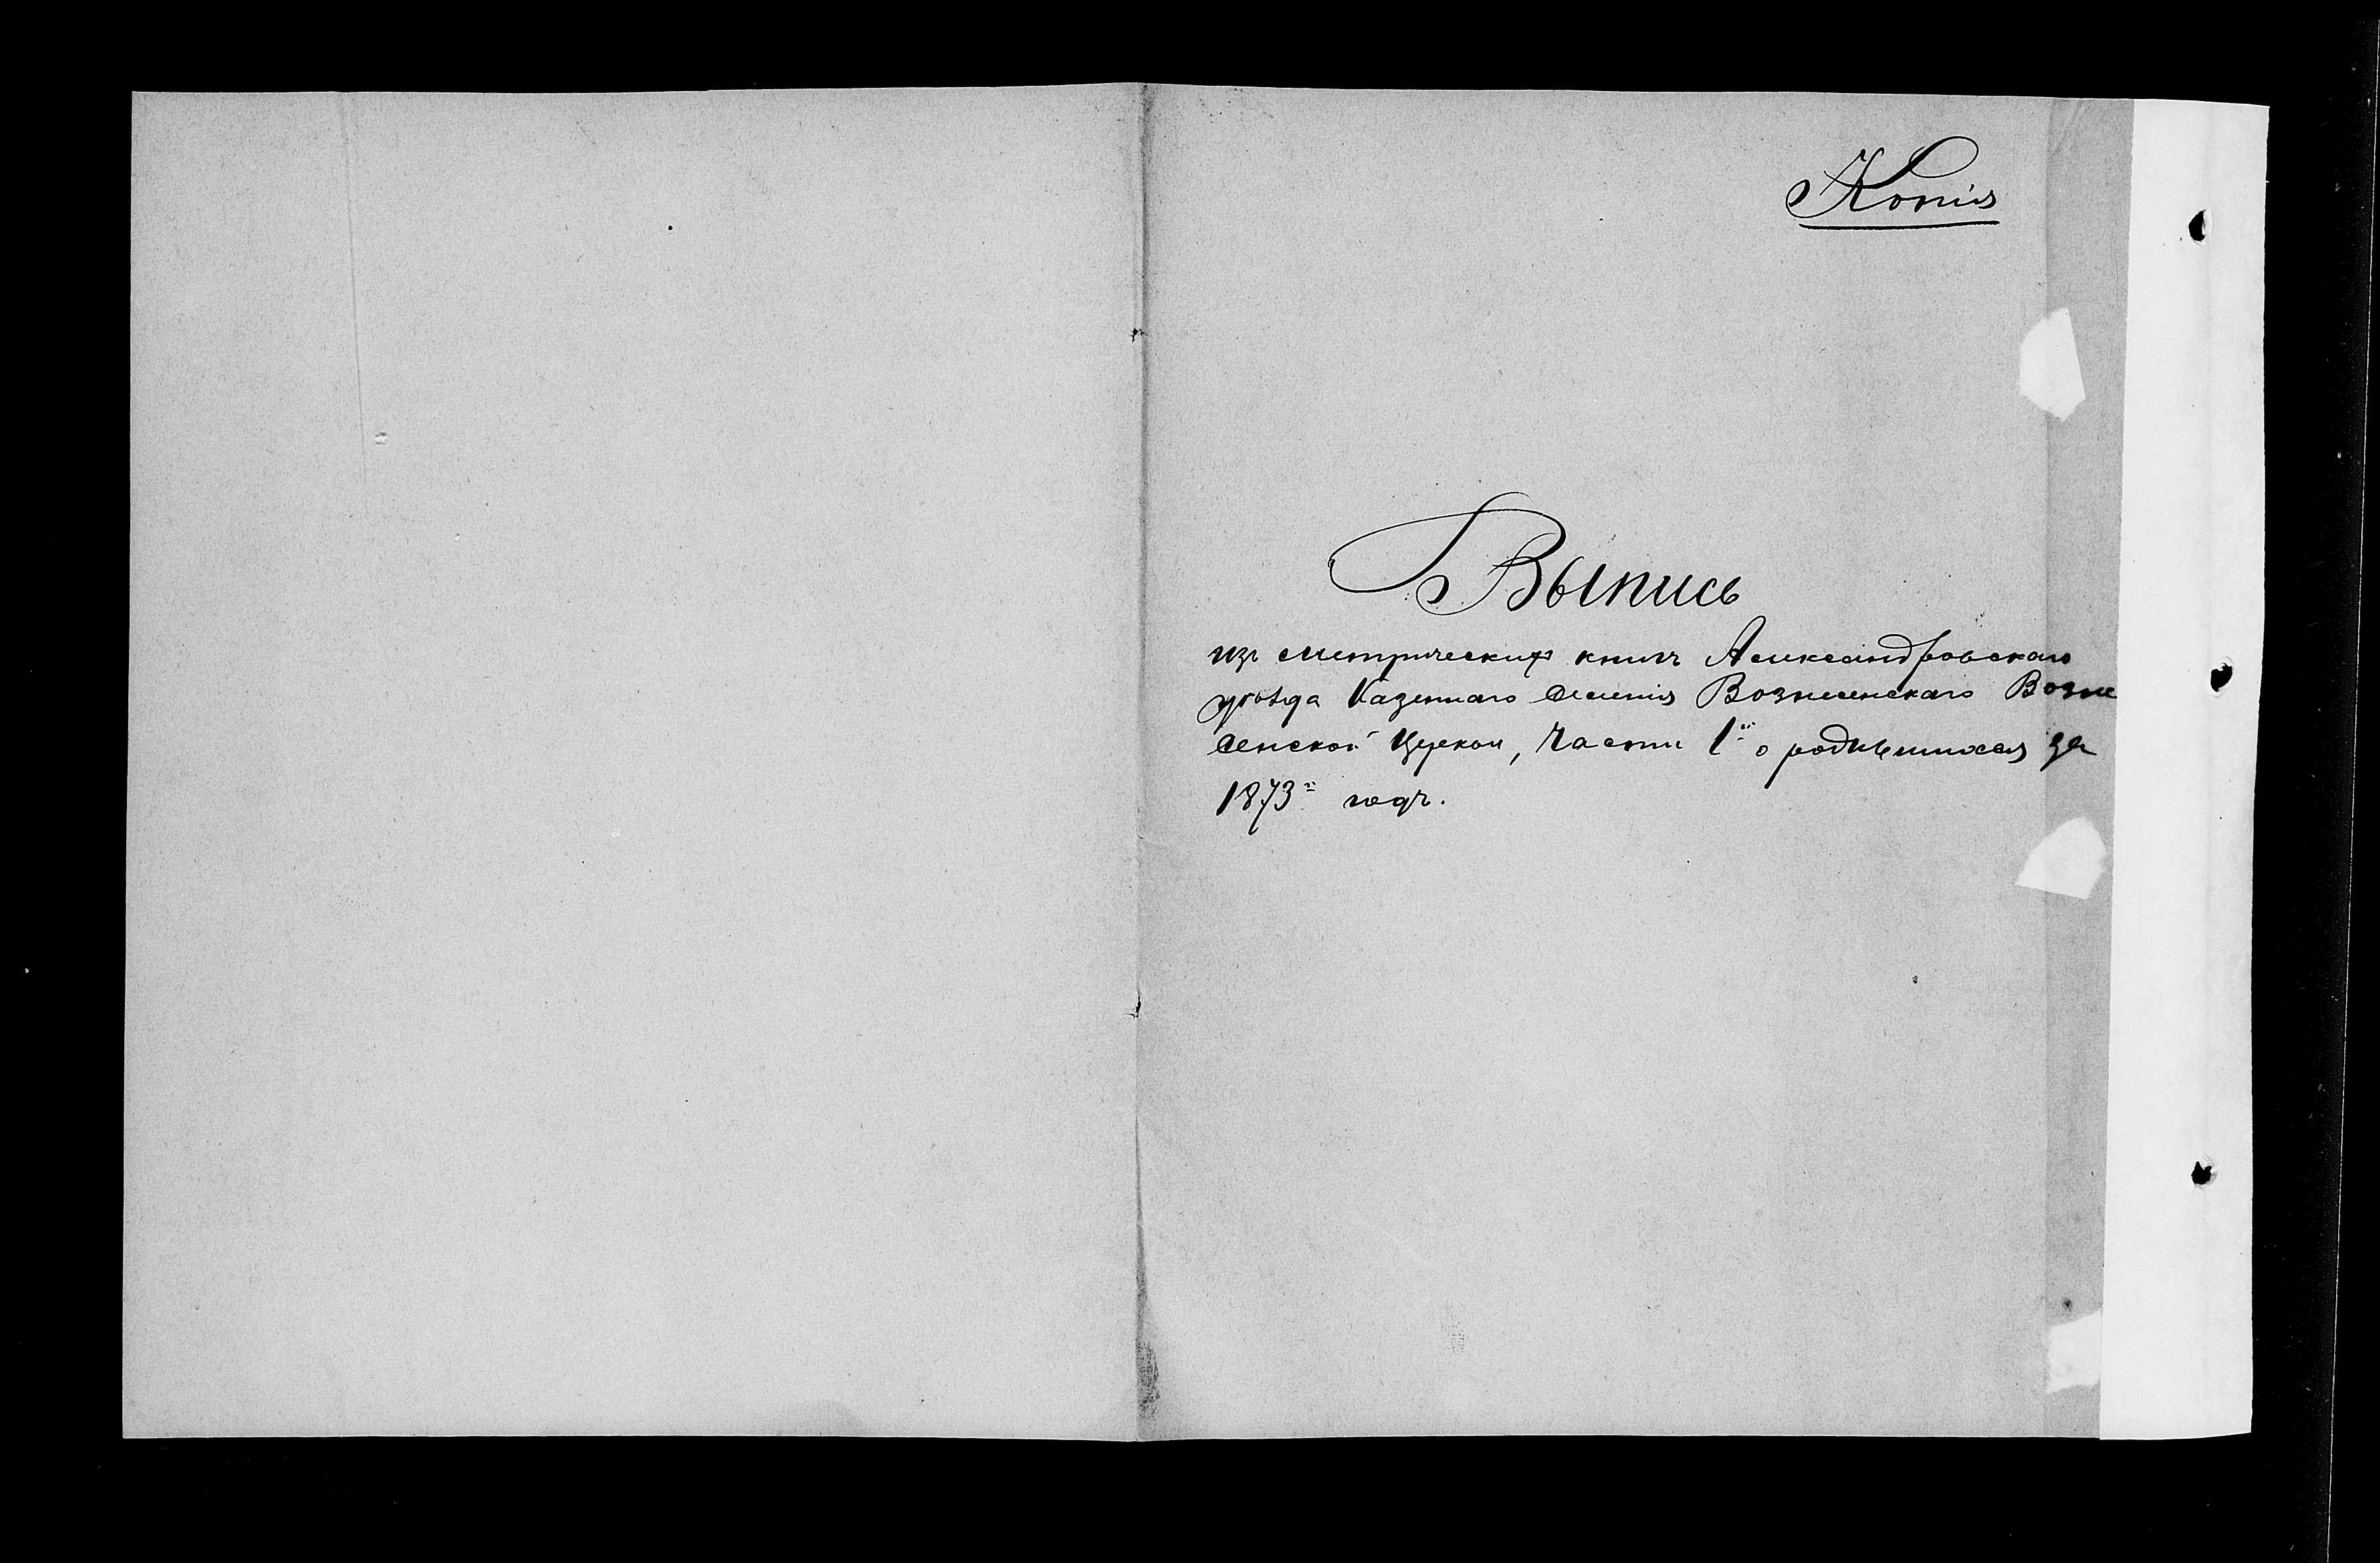 Копія
Выпись
изъ метрическихъ книгъ Александровскаго
уѣзда Казеннаго селенія Вознесенскаго Возне
сенской Церкви, Части 1й о родившихся за
1873й годъ.